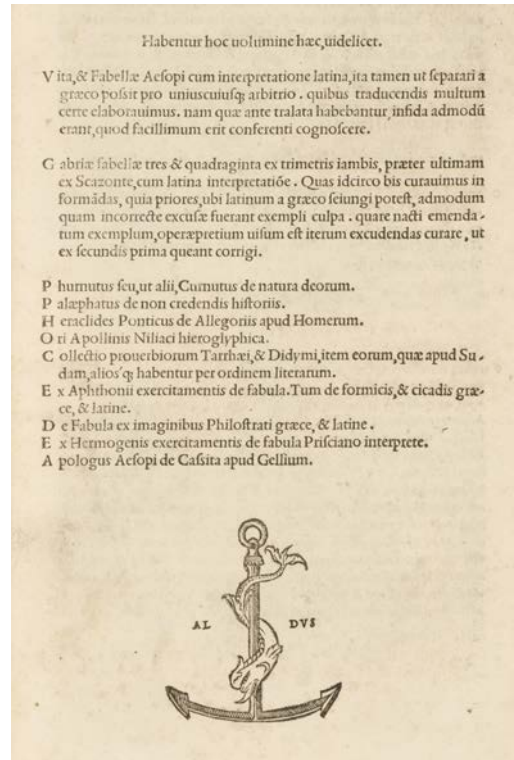 Habentur hoc uolumine hæc, uidelicet.
Vita, & Fabellæ Aesopi cum interpretatione latina, ita tamen ut separari a
græco possit pro uniuscuiusq; arbitrio. quibus traducendis multum
certe elaborauimus. nam quæ ante tralata habebantur, infida admodũ
erant, quod facillimum erit conferenti cognoscere.
Gabriæ fabellæ tres & quadraginta ex trimetris iambis, præter ultimam
ex Scazonte, cum latina interpretatiõe. Quas idcirco bis curauimus in
formãdas, quia priores, ubi latinum a græco seiungi potest, admodum
quam incorrecte excusæ fuerant exempli culpa. quare nacti emenda-
tum exemplum, operæpretium uisum est iterum excudendas curare, ut
ex secundis prima queant corrigi.
Phurnutus seu, ut alii, Curnutus de natura deorum.
Palæphatus de non credendis historiis.
Heraclides Ponticus de Allegoriis apud Homerum.
Ori Apollinis Niliaci hieroglyphica.
Collectio prouerbiorum Tarrhæi, & Didymi, item eorum, quæ apud Su-
dam, alios'q; habentur per ordinem literarum.
Ex Aphthonii exercitamentis de fabula. Tum de formicis, & cicadis græ-
ce, & latine.
De Fabula ex imaginibus Philostrati græce, & latine.
Ex Hermogenis exercitamentis de fabula Prisciano interprete.
Apologus Aesopi de Cassita apud Gellium.
AL DVS